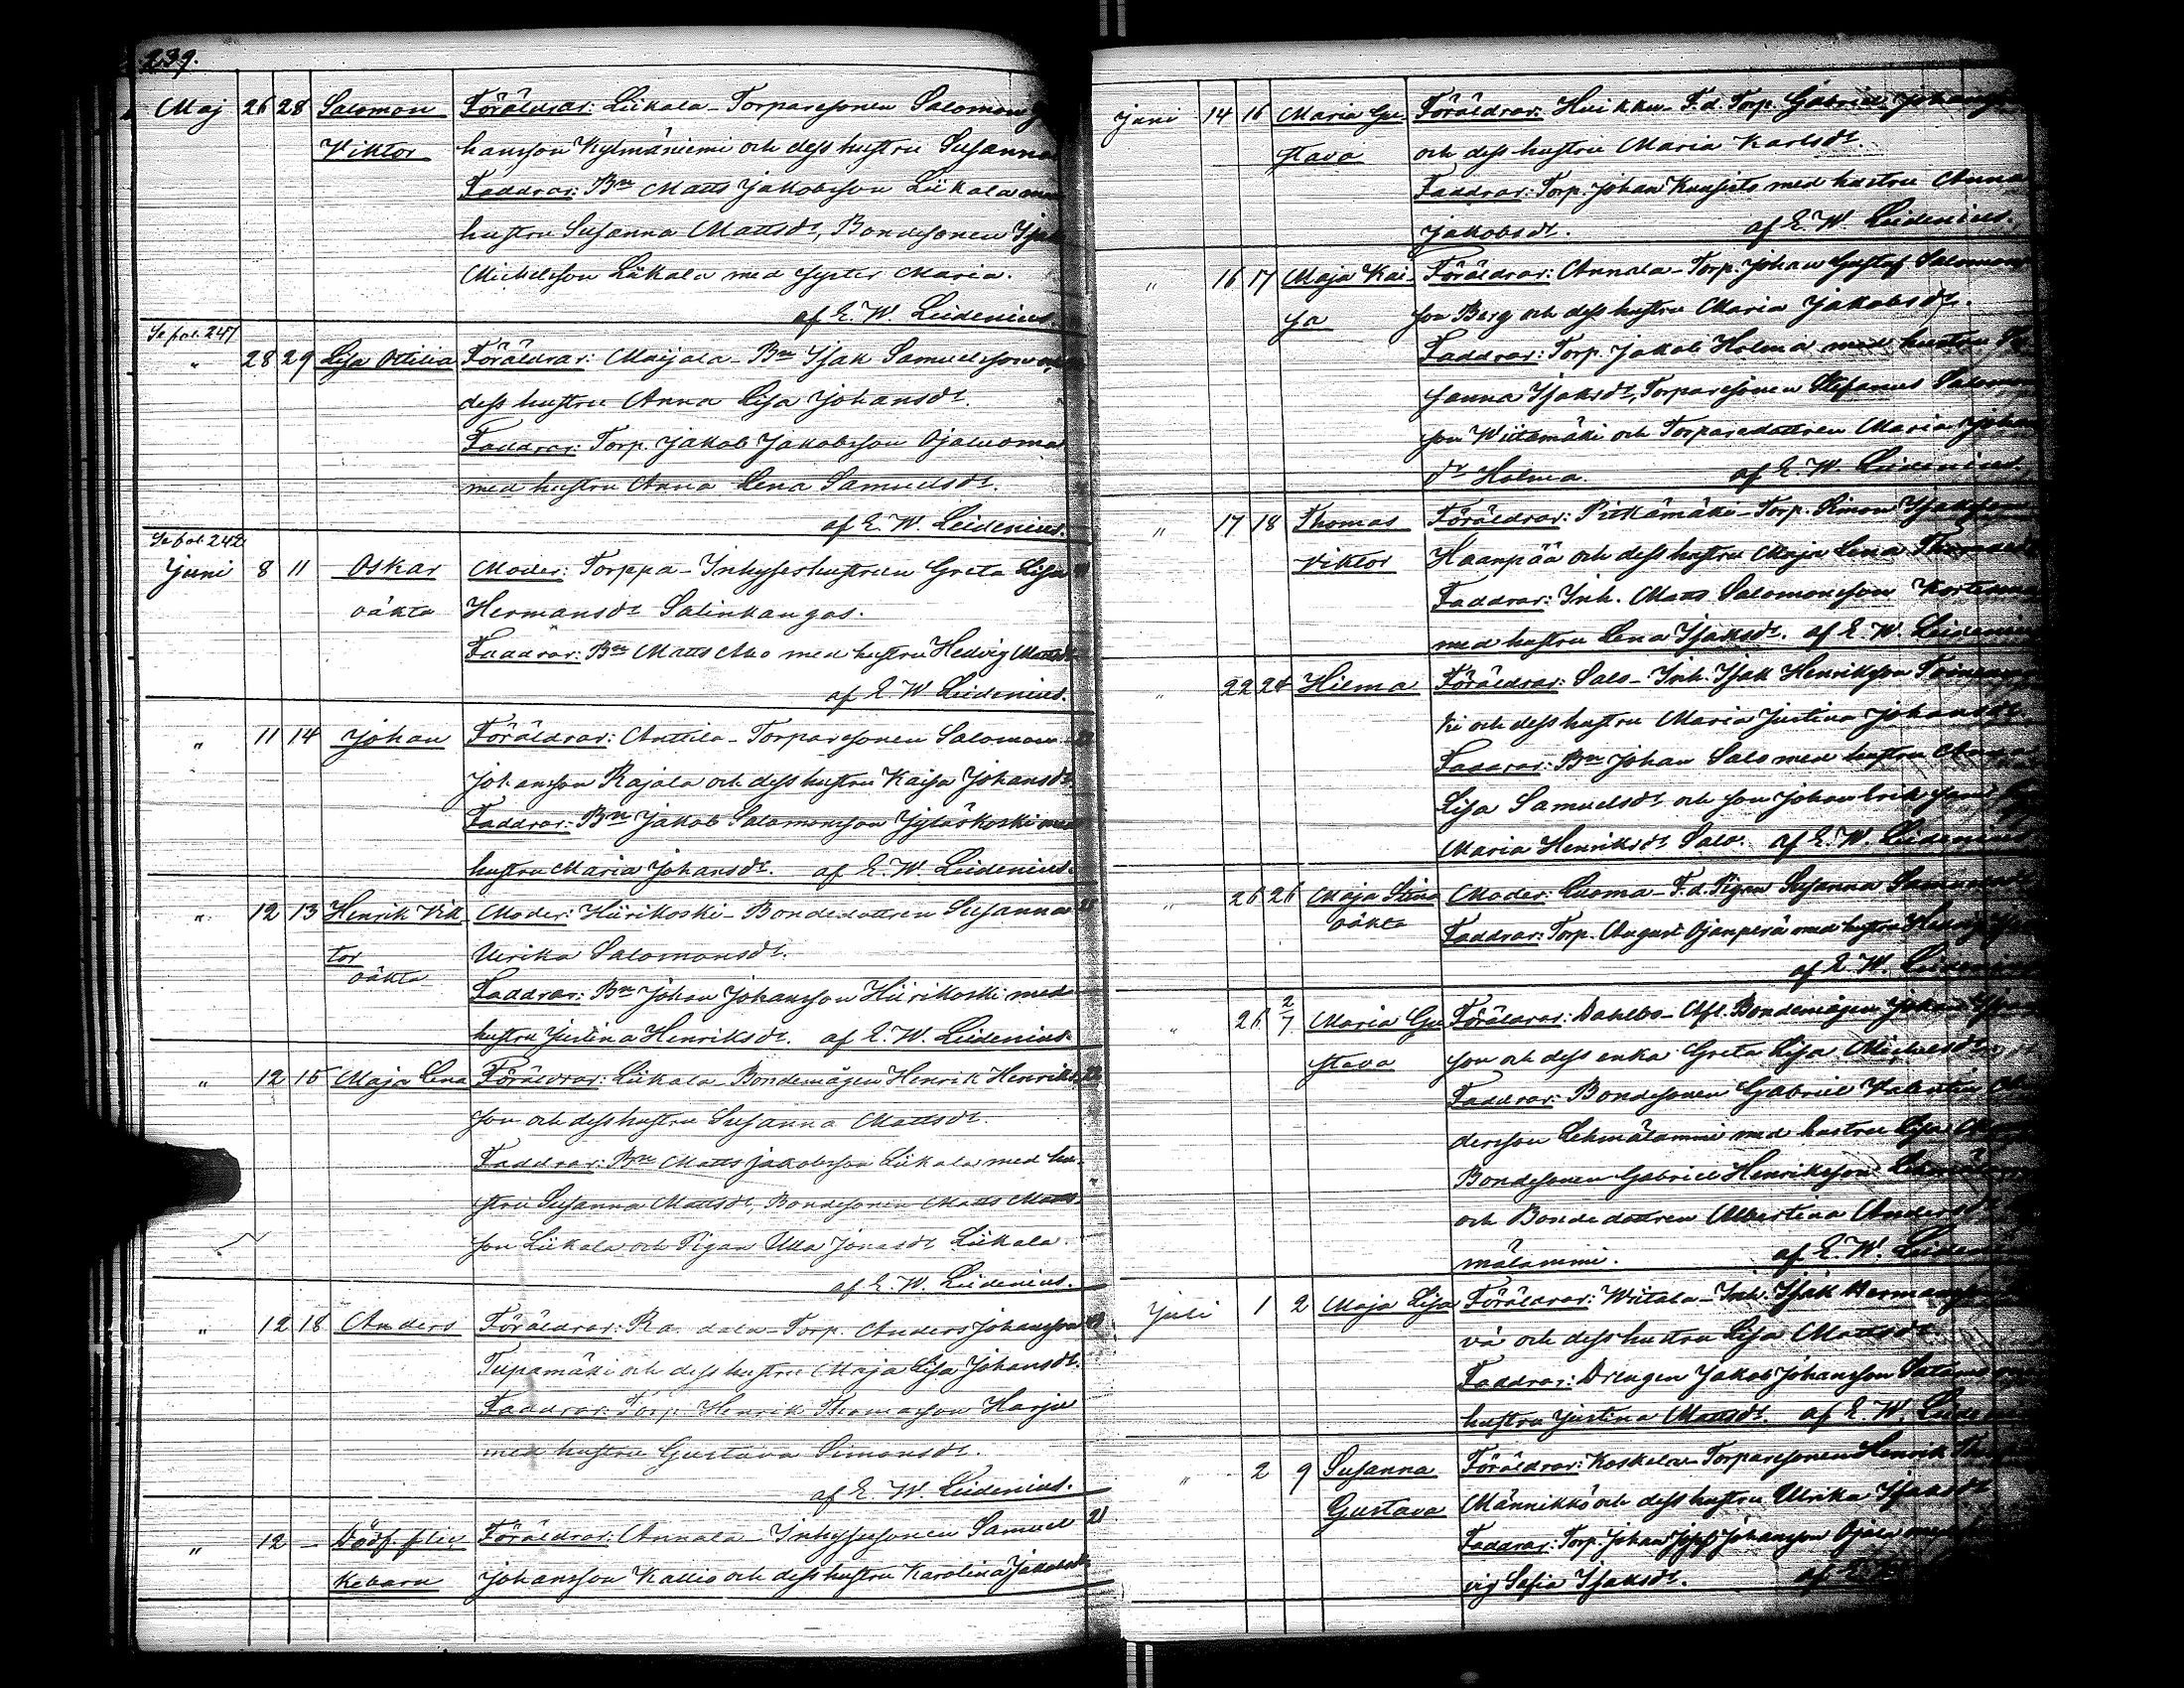 239.
Maj 26 28 Salomon Föräldrar: Liikala - Torparesonen Salomon Jo
Viktor hansson Kylmäniemi och dess hustru Susanna
Faddrar: Bn Matts Jakobsson Liikala med
hustru Susanna Mattsdr, Bondesonen Isak
Michelsson Liikala med syster Maria.
af E. W. Leidenius.
Se fol. 247
" 28 29 Lisa Ottilia Föräldrar: Maijala - Bn Isak Samuelsson och
dess hustru Anna Lisa Johansdr.
Faddrar: Torp. Jakob Jakobsson Ojaluoma
med hustru Anna Lena Samuelsdr.
af E. W. Leidenius.
Se fol. 242
Juni 8 11 Oskar Moder: Torppa - Inhyseshustrun Greta Lisa
oäkta Hermansdr Salinkangas.
Faddrar: Bn Matts Aho med hustru Hedvig Mattsdr
af E. W. Leidenius.
" 11 14 Johan Föräldrar: Anttila - Torparesonen Salomon
Johansson Rajala och dess hustru Kaisa Johansdr.
Faddrar: Bn Jakob Salomonsson Jyläskoski med
hustru Maria Johansdr. af E. W. Leidenius.
" 12 13 Henrik Vik Moder: Hiirikoski - Bondedottren Susanna
tor Ulrika Salomonsdr.
oäkta Faddrar: Bn Johan Johansson Hiirikoski med
hustru Justina Henriksdr. af E. W. Leidenius.
" 12 15 Maja Lena Föräldrar: Liikala - Bondemågen Henrik Henriks
son och dess hustru Susanna Mattsdr.
Faddrar: Bn Matts Jakobsson Liikala med hu-
stru Susanna Mattsdr, Bondesonen Matts Matts
son Liikala och Pigan Ulla Jonasdr Liikala.
af E. W. Leidenius.
" 12 18 Anders Föräldrar: Ra dala - Torp. Anders Johansson
Tupamäki och dess hustru Maja Lisa Johansdr.
Faddrar: Torp. Henrik Thomasson Harju
med hustru Gustava Simonsdr.
af E. W. Leidenius.
" 12 - Dödf. flic Föräldrar: Annala - Inhysessonen Samuel
kebarn Johansson Kallio och dess hustru Karolina Jakobsdr
Juni 14 16 Maria Gu- Föräldrar: Huikku - F.d. Torp. Gabriel Johansson
stava och dess hustru Maria Karlsdr.
Faddrar: Torp. Johan Kunsists med hustru Anna
Jakobsdr. af E. W. Leidenius.
" 16 17 Maja Kai- Föräldrar: Annala - Torp. Johan Gustaf Salomons
sa son Berg och dess hustru Maria Jakobsdr.
Faddrar: Torp. Jakob Holma med hustru Su-
sanna Isaksdr, Torparesonen Stefanus Salomon
son Wiitamäki och Torparedottren Maria Johan
dr Holma. af E. W. Leidenius.
" 17 18 Thomas Föräldrar: Pitkämäki - Torp. Simon Isaksson
Viktor Haanpää och dess hustru Maja Lena Thomasdr
Faddrar: Inh. Matts Salomonsson
med hustru Lena Isaksdr. af E. W. Leidenius
" 22 24 Hilma Föräldrar: Salo - Inh. Isak Henriksson
ki och dess hustru Maria Justina Johansdr.
Faddrar: Bn Johan Salo med hustru Anna
Lisa Samuelsdr och son Johan Erik samt
Maria Henriksdr Salo. af E. W. Leidenius
" 26 26 Maja Stina Moder: Luoma - F.d. Pigan Susanna
oäkta Faddrar: Torp. August Ojanperä med hustru Hedvig
af E. W. Leidenius
" 26 2/7 Maria Gu- Föräldrar: Dahlbo - Afl. Bondemågen Johan
stava son och dess enka Greta Lisa Michelsdr
Faddrar: Bondesonen Gabriel Valentin An
dersson Lehmälammi med hustru Lisa
Bondesonen Gabriel Henriksson
och Bondedottren Albertina Andersdr
mälammi. af E. W. Leidenius
Juli 1 2 Maja Lisa Föräldrar: Wiitala - Inh. Isak Hermansson
vä och dess hustru Lisa Mattsdr
Faddrar: Drengen Jakob Johansson
hustru Justina Mattsdr. af E. W.
" 2 9 Susanna Föräldrar: Koskela - Torparesonen Henrik
Gustava Männikkö och dess hustru Ulrika Isaksdr
Faddrar: Torp. Johan Johansson Ojala
vig Sofia Isaksdr. af E.